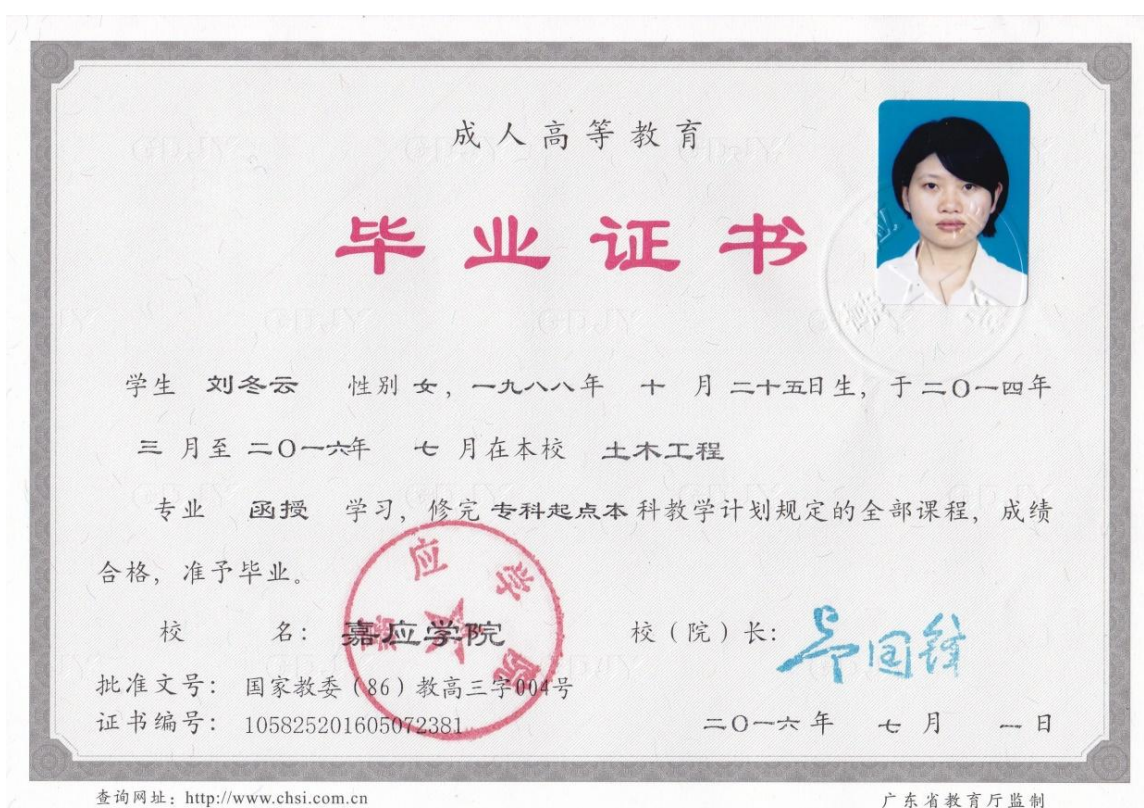 成人高等教育
毕业证书
学生 刘冬云 性别 女，一九八八年 十 月 二十五日生，于二〇一四年
三 月至 二〇一六年 七 月在本校 土木工程
专业 函授 学习，修完 专科起点本 科教学计划规定的全部课程，成绩
合格，准予毕业。
校 名： 嘉应学院 校（院）长：
嘉应学院
批准文号： 国家教委（86）教高三字004号
证书编号： 105825201605072381 二〇一六年 七 月 一 日
查询网址：http://www.chsi.com.cn 广东省教育厅监制